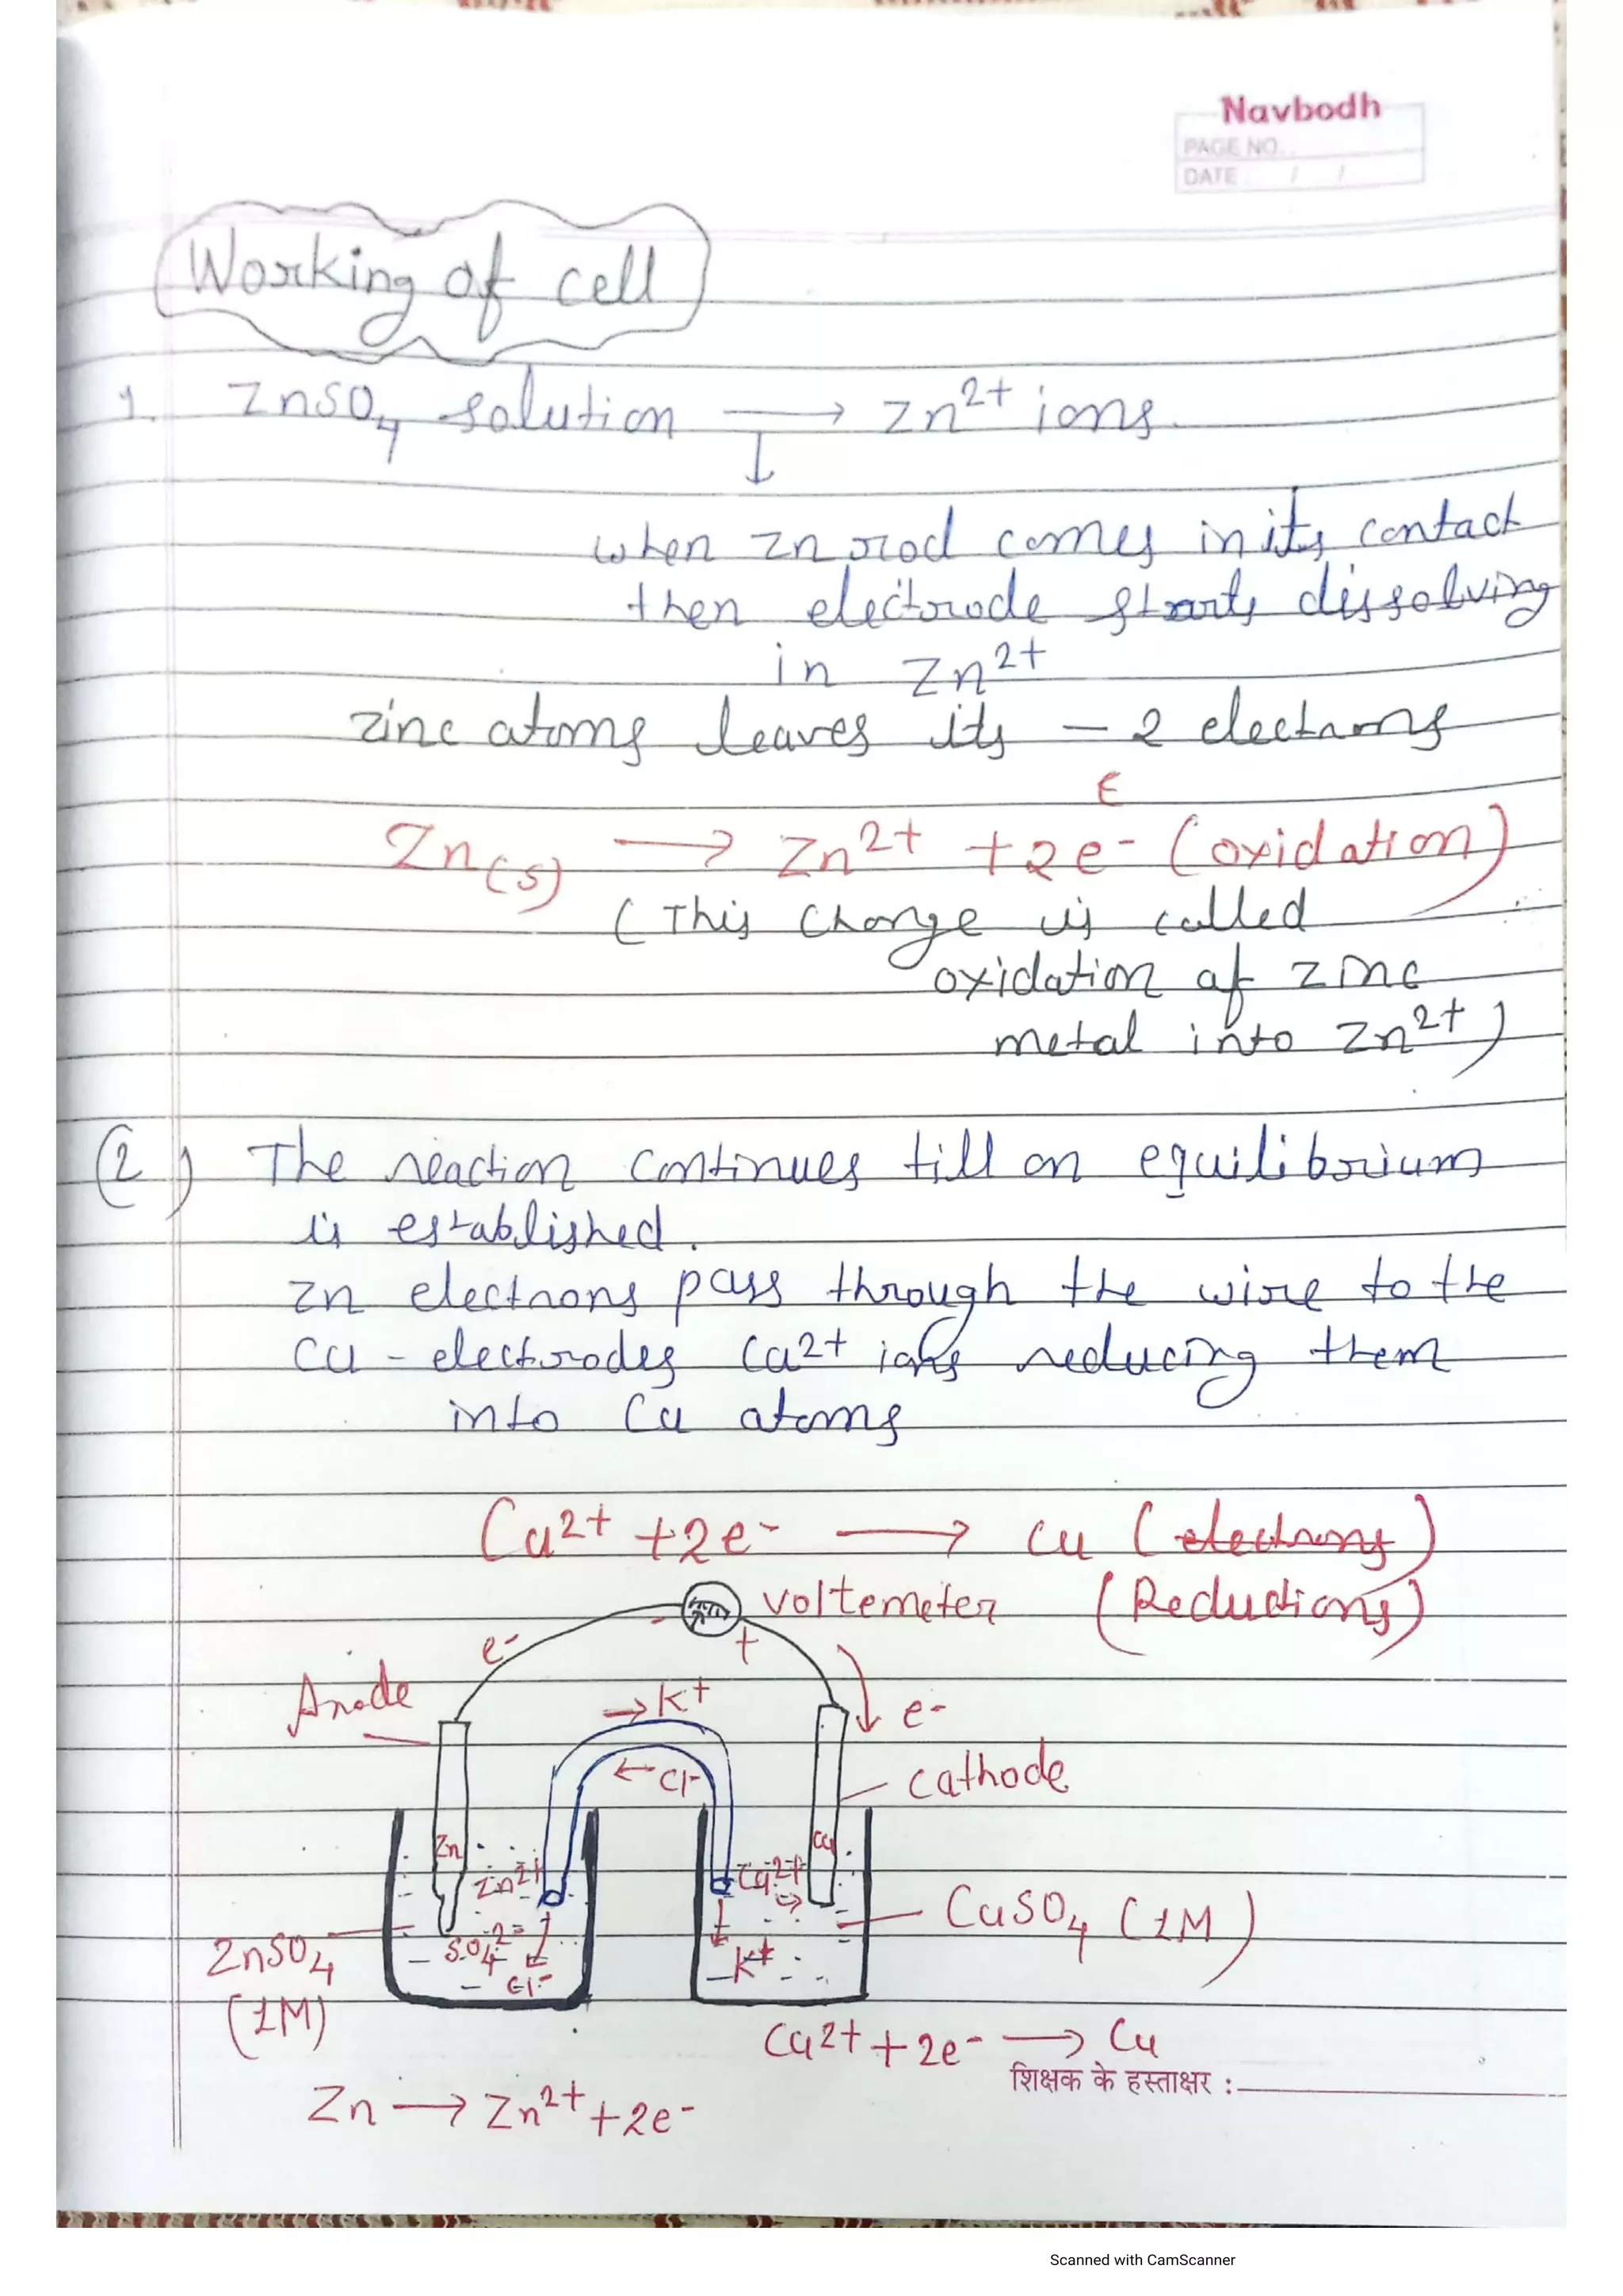 Navbodh
PAGE NO.
DATE / /
Working of cell
1. ZnSO4 solution → Zn2+ ions
↓
when Zn rod comes in its contact
then electrode starts dissolving
in Zn2+
zinc atoms leaves its – 2 electrons
E
Zn(s) → Zn2+ + 2e- (oxidation)
(This change is called
oxidation of zinc
metal into Zn2+)
(2) The reaction continues till an equilibrium
is established.
Zn electrons pass through the wire to the
Cu - electrodes Cu2+ ions reducing them
into Cu atoms
Cu2+ + 2e- → Cu (electrons)
voltemeter (Reductions)
- +
e-
Anode → K+ e-
← Cl- cathode
Zn Cu
Zn2+ Cu2+
ZnSO4 SO42- CuSO4 (1M)
Cl- K+
(1M)
Cu2+ + 2e- → Cu
शिक्षक के हस्ताक्षर :
Zn → Zn2+ + 2e-
Scanned with CamScanner